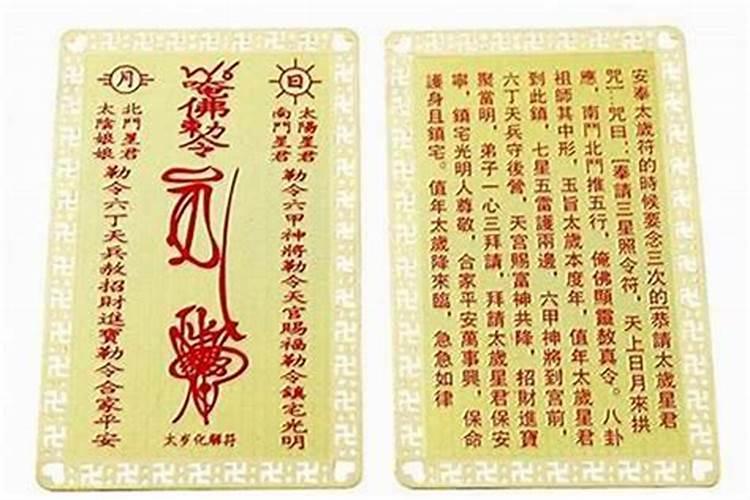 日
太陽星君
南鬥星君
勒令六甲神將勒令天官賜福勒令鎮宅光明
唵佛勅令
太岁化解符
月
北鬥星君
太陰娘娘
勒令六丁天兵赦招財進寶勒令合家平安
安奉太歲符的時候要念三次的[恭請太歲星君
咒]咒曰:[奉請三星照令符,天上日月來拱
應,南鬥北鬥推五行,俺佛顯靈敖真令。八卦
祖師其中形,玉旨太歲本度年,值年太歲星君
到此鎮,七星五雷護兩邊,六甲神將到宮前,
六丁天兵守後營,天宮賜富神共降,招財進寶
聚當明,弟子一心三拜請,拜請太歲星君保安
寧,鎮宅光明人尊敬,合家平安萬事興,保命
護身且鎮宅。值年太歲降來臨,急急如律